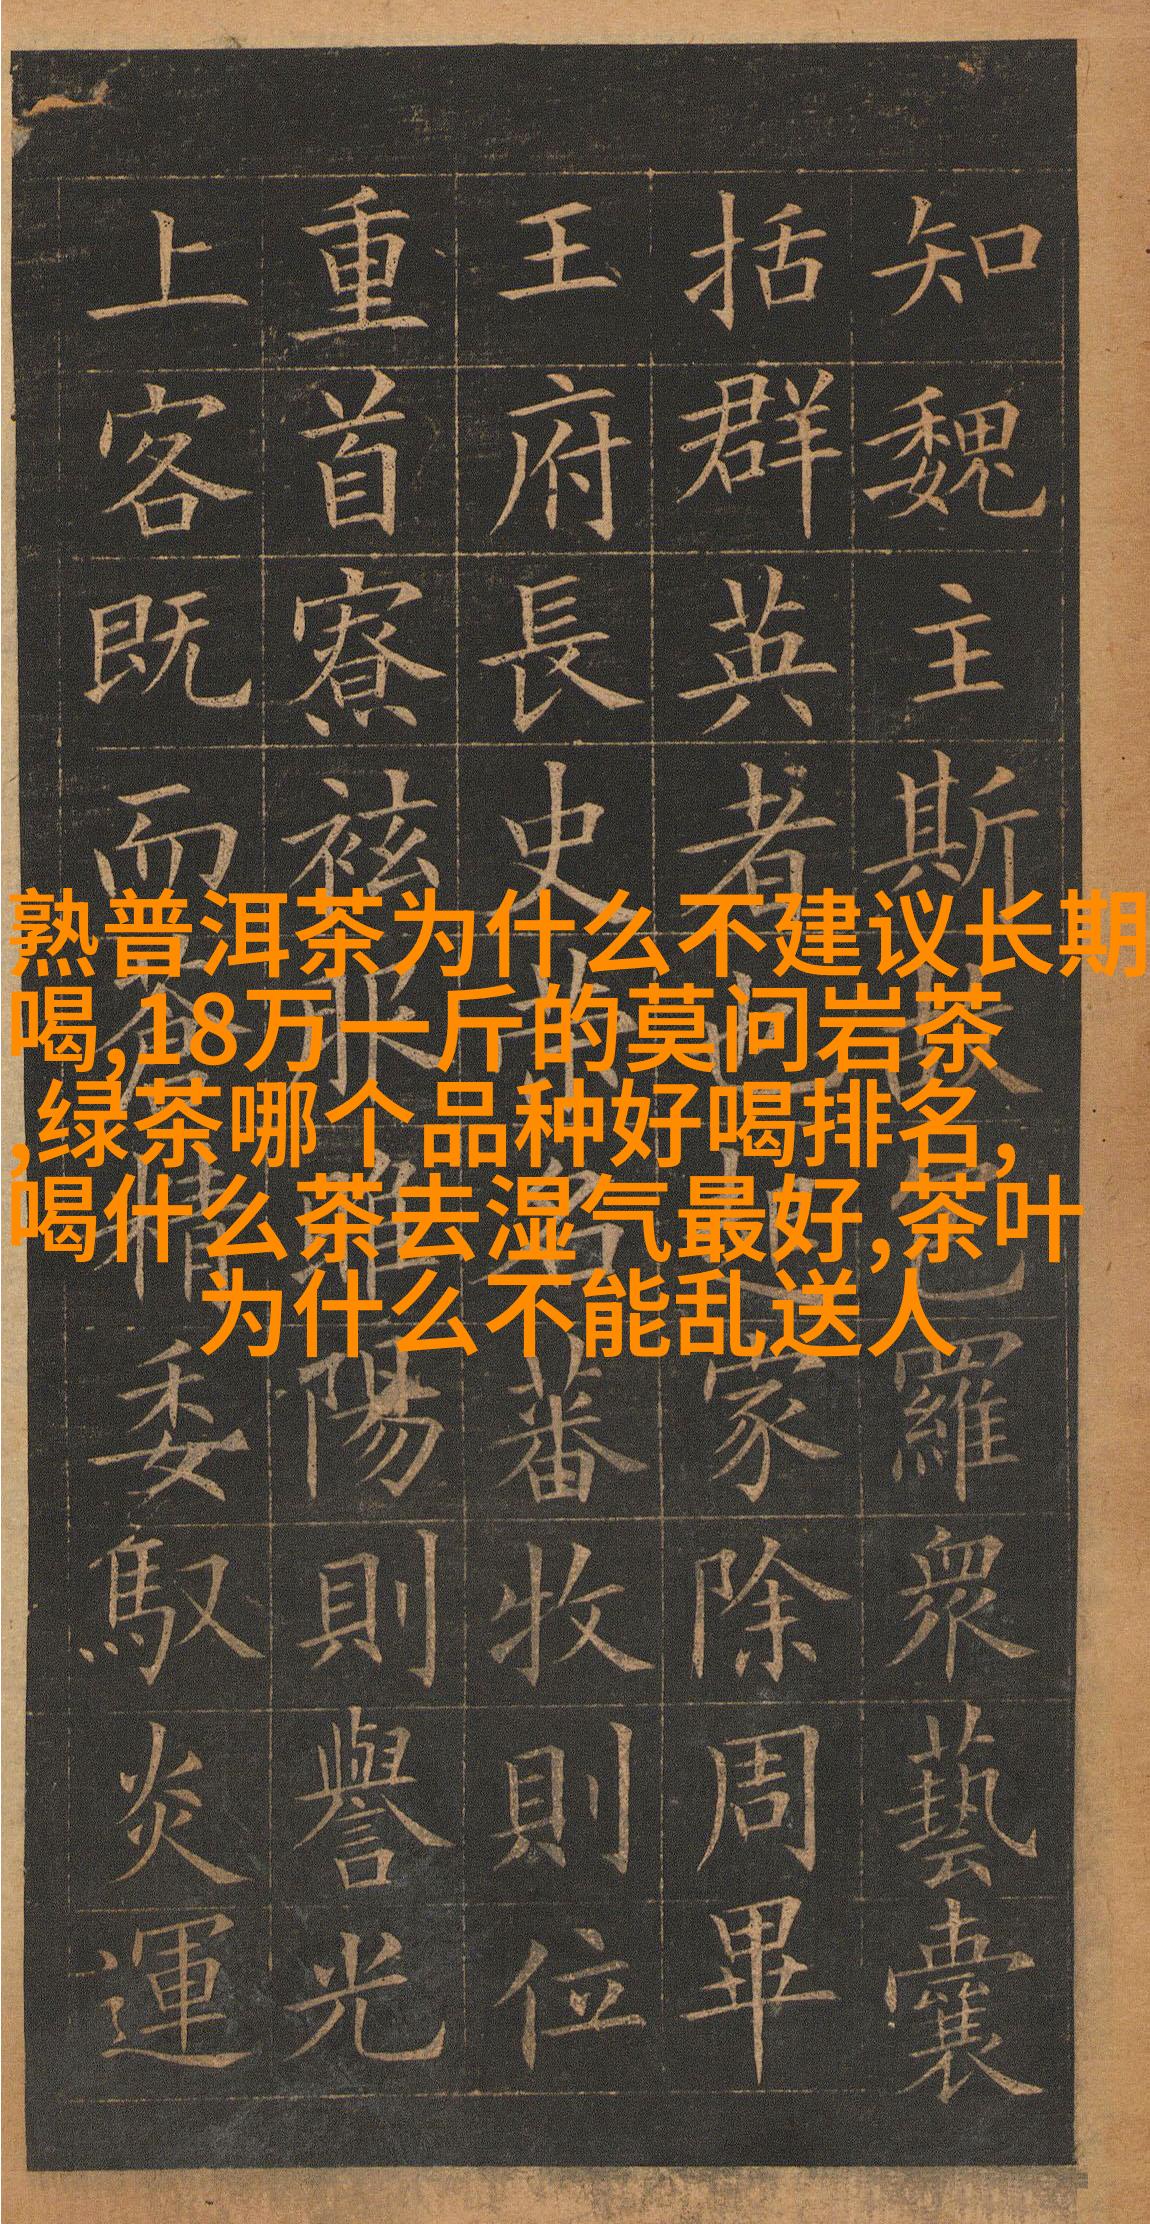 熟普洱茶为什么不建议长期
喝,18万一斤的莫问岩茶
,绿茶哪个品种好喝排名,
喝什么茶去湿气最好,茶叶
为什么不能乱送人
知魏主斯包羅衆藝囊
括群英者也家除周畢
王府長史名蕃牧則位
重首寮陽則譽光
上客既而蒼精委馭炎運